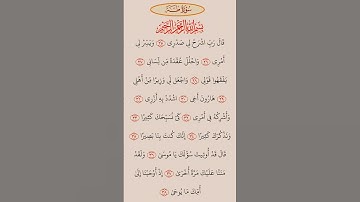 سورة طه
بسم الله الرحمن الرحيم
قَالَ رَبِّ اشْرَحْ لِي صَدْرِي ٢٥ وَيَسِّرْ لِي
أَمْرِي ٢٦ وَاحْلُلْ عُقْدَةً مِّن لِّسَانِي ٢٧
يَفْقَهُوا قَوْلِي ٢٨ وَاجْعَل لِّي وَزِيرًا مِّنْ أَهْلِي
٢٩ هَارُونَ أَخِي ٣٠ اشْدُدْ بِهِ أَزْرِي ٣١
وَأَشْرِكْهُ فِي أَمْرِي ٣٢ كَيْ نُسَبِّحَكَ كَثِيرًا ٣٣
وَنَذْكُرَكَ كَثِيرًا ٣٤ إِنَّكَ كُنتَ بِنَا بَصِيرًا ٣٥
قَالَ قَدْ أُوتِيتَ سُؤْلَكَ يَا مُوسَى ٣٦ وَلَقَدْ
مَنَنَّا عَلَيْكَ مَرَّةً أُخْرَى ٣٧ إِذْ أَوْحَيْنَا إِلَى
أُمِّكَ مَا يُوحَى ٣٨